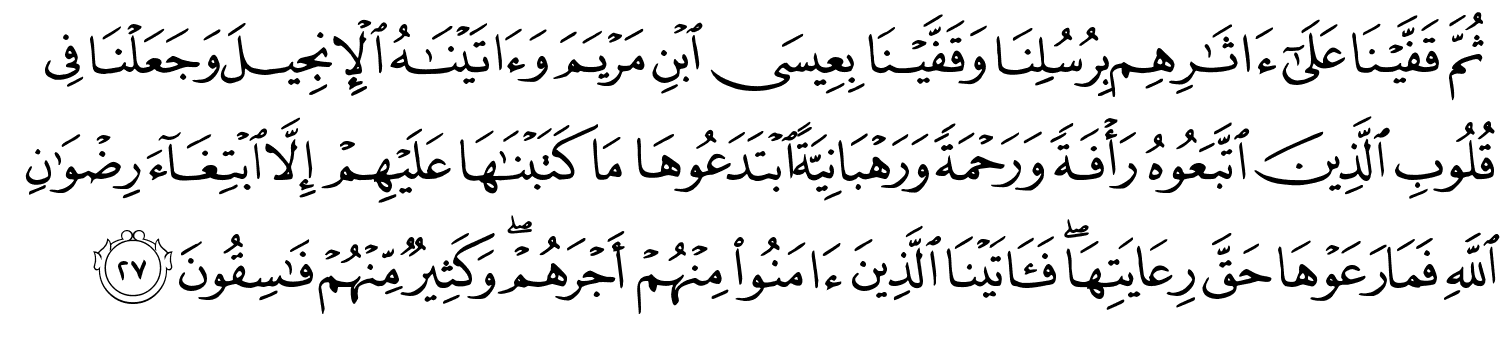 ثُمَّ قَفَّيْنَا عَلَىٰٓ ءَاثَـٰرِهِم بِرُسُلِنَا وَقَفَّيْنَا بِعِيسَى ٱبْنِ مَرْيَمَ وَءَاتَيْنَـٰهُ ٱلْإِنجِيلَ وَجَعَلْنَا فِى
قُلُوبِ ٱلَّذِينَ ٱتَّبَعُوهُ رَأْفَةً وَرَحْمَةً وَرَهْبَانِيَّةً ٱبْتَدَعُوهَا مَا كَتَبْنَـٰهَا عَلَيْهِمْ إِلَّا ٱبْتِغَآءَ رِضْوَٰنِ
ٱللَّهِ فَمَا رَعَوْهَا حَقَّ رِعَايَتِهَا ۖ فَـَٔاتَيْنَا ٱلَّذِينَ ءَامَنُوا۟ مِنْهُمْ أَجْرَهُمْ ۖ وَكَثِيرٌ مِّنْهُمْ فَـٰسِقُونَ ٢٧